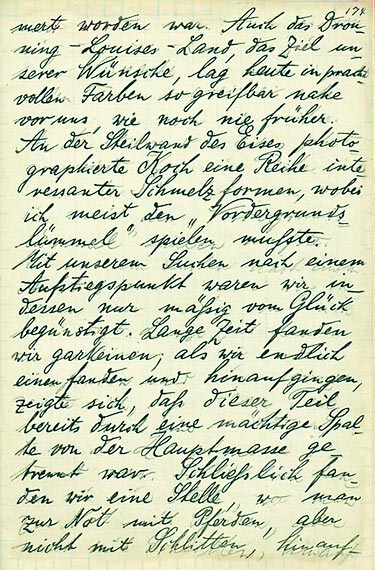 174
mert worden war. Auch das Dron-
ning-Louises-Land, das Ziel un-
serer Wünsche, lag heute in pracht
vollen Farben so greifbar nahe
vor uns, wie noch nie früher.
An der Steilwand des Eises photo-
graphierte Koch eine Reihe inte
ressanter Schmelzformen, wobei
ich meist den „Vordergrunds-
lümmel" spielen mußte.
Mit unserem Suchen nach einem
Aufstiegspunkt waren wir in-
dessen nur mäßig vom Glück
begünstigt. Lange Zeit fanden
wir garkeinen; als wir endlich
einen fanden und hinaufgingen,
zeigte sich, daß dieser Teil
bereits durch eine mächtige Spal-
te von der Hauptmasse ge
trennt war. Schließlich fan-
den wir eine Stelle, wo man
zur Not mit Pferden, aber
nicht mit Schlitten, hinauf-